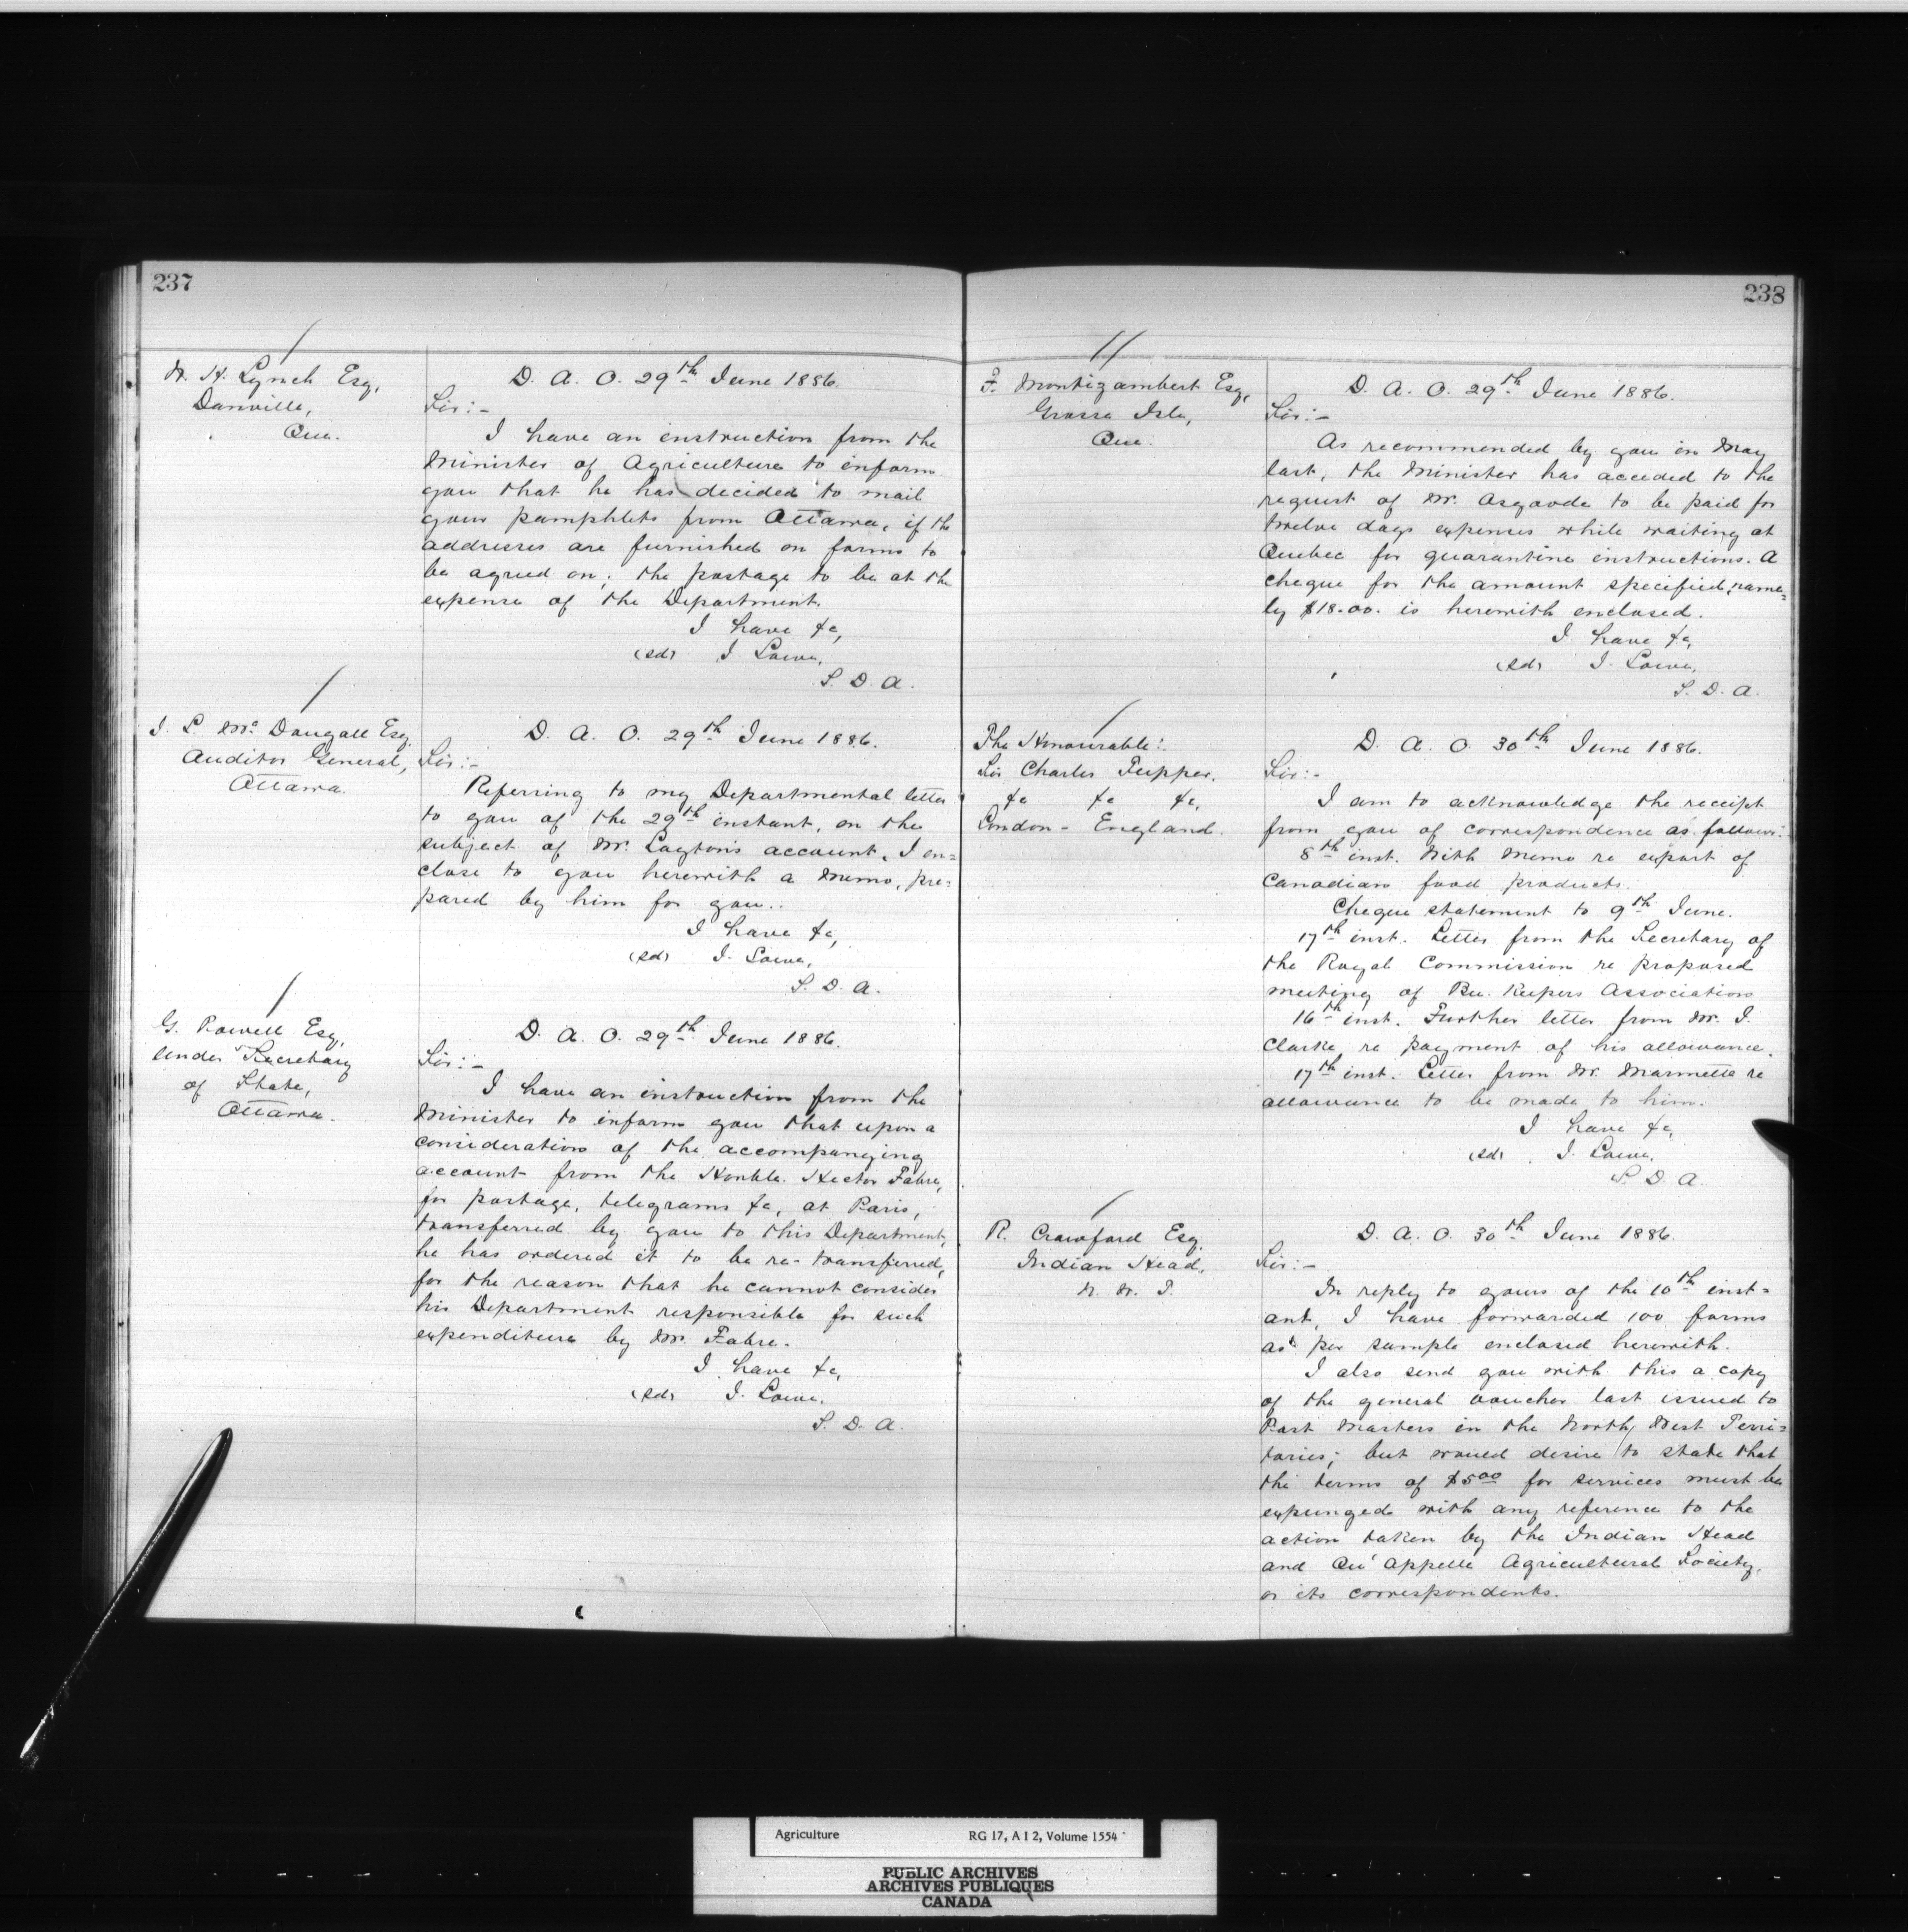 237
W. H. Lynch Esq,
Danville,
Que.
D. A. O. 29th June 1886.
Sir:-
I have an instruction from the
Minister of Agriculture to inform
you that he has decided to mail
your pamphlets from Ottawa, if the
addresses are furnished on forms to
be agreed on; the postage to be at the
expense of the Department.
I have &c,
(sd) J Lowe,
S. D. A.
J. L. McDougall Esq.
Auditor General,
Ottawa.
D. A. O. 29th June 1886.
Sir:-
Referring to my Departmental letter
to you of the 29th instant, on the
subject of Mr. Layton's account, I en=
close to you herewith a memo, pre=
pared by him for you.
I have &c,
(sd) J. Lowe,
S. D. A.
G. Powell Esq,
Under Secretary
of State,
Ottawa.
D. A. O. 29th June 1886.
Sir:-
I have an instruction from the
Minister to inform you that upon a
consideration of the accompanying
account from the Honble. Hector Fabre,
for postage, telegrams &c, at Paris,
transferred by you to this Department,
he has ordered it to be re-transferred,
for the reason that he cannot consider
his Department responsible for such
expenditure by Mr. Fabre.
I have &c,
(sd) J. Lowe,
S. D. A.
238
F. Montizambert Esq,
Grosse Isle,
Que.
D. A. O. 29th June 1886.
Sir:-
As recommended by you in May
last, the Minister has acceded to the
request of Mr. Asgoode to be paid for
twelve days expenses while waiting at
Quebec for quarantine instructions. A
cheque for the amount specified, name=
ly $18.00. is herewith enclosed.
I have &c,
(sd) J. Lowe,
S. D. A.
The Honourable:
Sir Charles Tupper.
&c &c &c,
London - England.
D. A. O. 30th June 1886.
Sir:-
I am to acknowledge the receipt
from you of correspondence as follows:
8th inst. With Memo re export of
Canadian food products.
Cheque statement to 9th June.
17th inst. Letter from the Secretary of
the Royal Commission re proposed
meeting of Bee Keepers Association
16th inst. Further letter from Mr. J.
Clarke re payment of his allowance.
17th inst. Letter from Mr. Marmette re
allowance to be made to him.
I have &c,
(sd) J. Lowe,
S. D. A.
R. Crawford Esq.
Indian Head,
N. W. T.
D. A. O. 30th June 1886.
Sir:-
In reply to yours of the 10th inst=
ant, I have forwarded 100 forms
as per sample enclosed herewith.
I also send you with this a copy
of the general voucher last issued to
Post Masters in the North West Terri=
tories; but would desire to state that
the terms of $5.00 for services must be
expunged with any reference to the
action taken by the Indian Head
and Qu'Appelle Agricultural Society,
or its correspondents.
Agriculture RG 17, A I 2, Volume 1554
PUBLIC ARCHIVES
ARCHIVES PUBLIQUES
CANADA